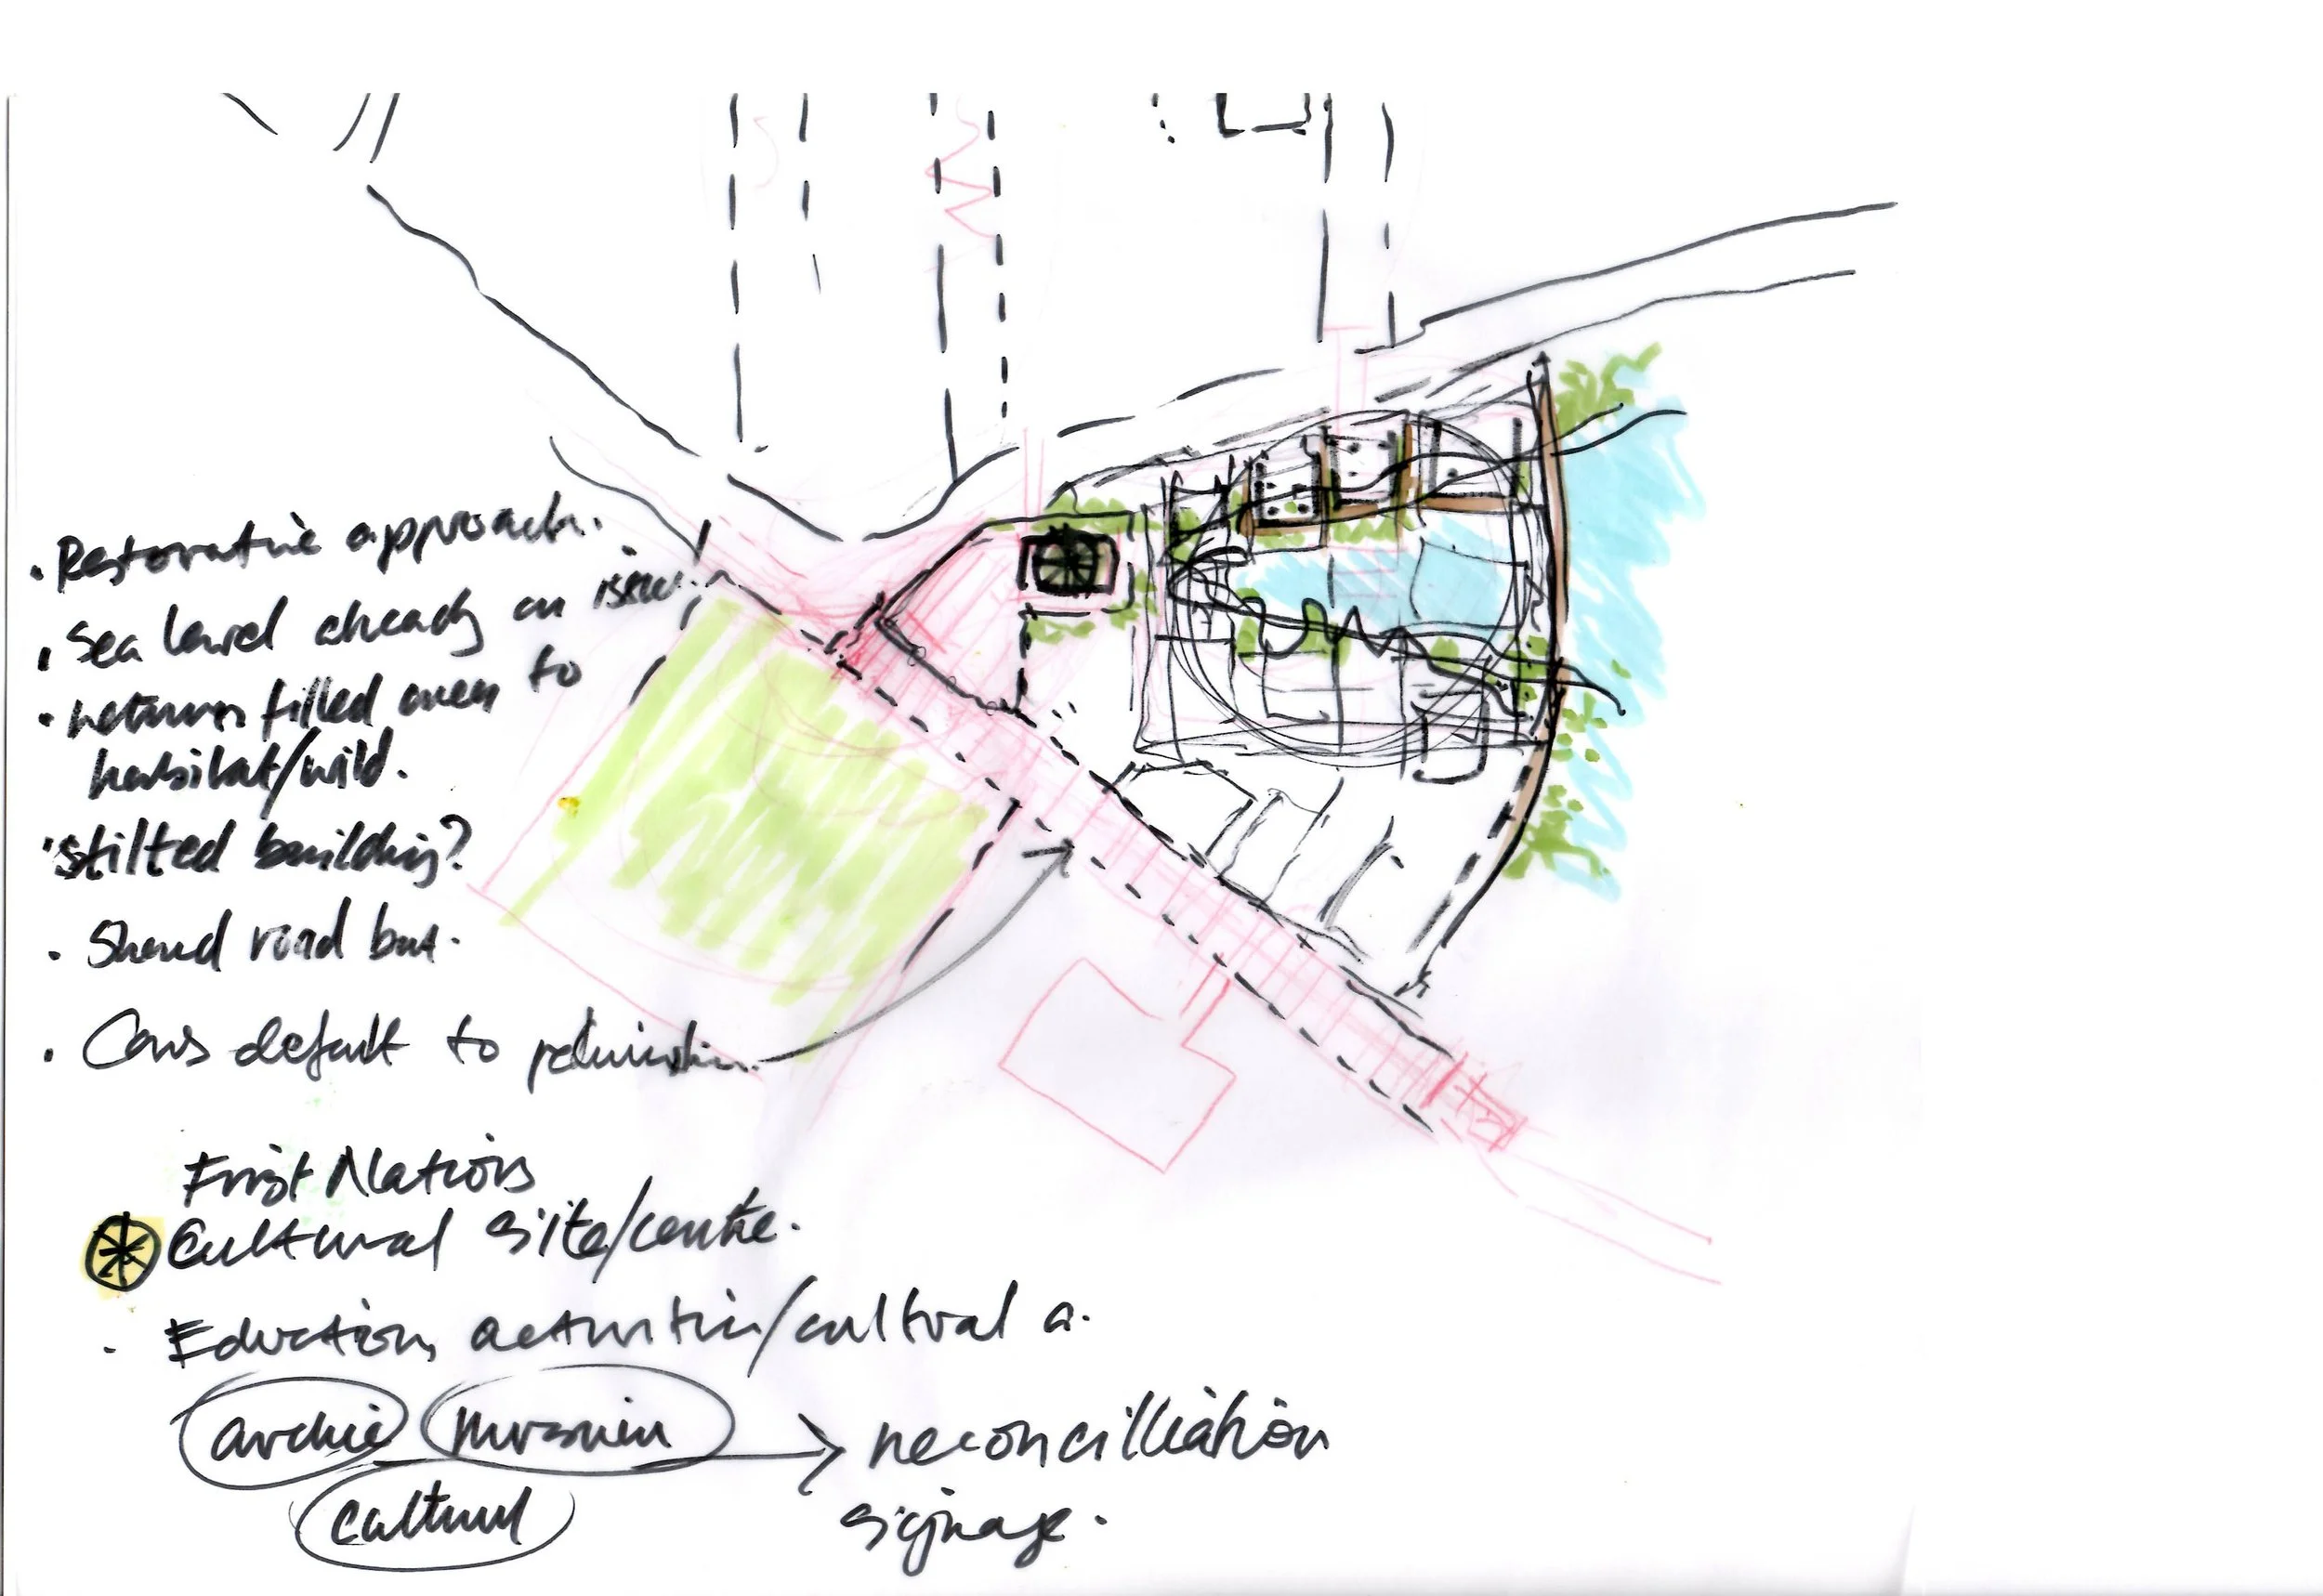 • Restorative approach.
• Sea level already an issue.
• returns filled area to
habitat/wild.
• stilted building?
• Shared road but.
• Cars default to pedestrian.
First Nations
Cultural site/centre.
• Education, activities/cultural a.
archive museum → reconcilliation
cultural signage.